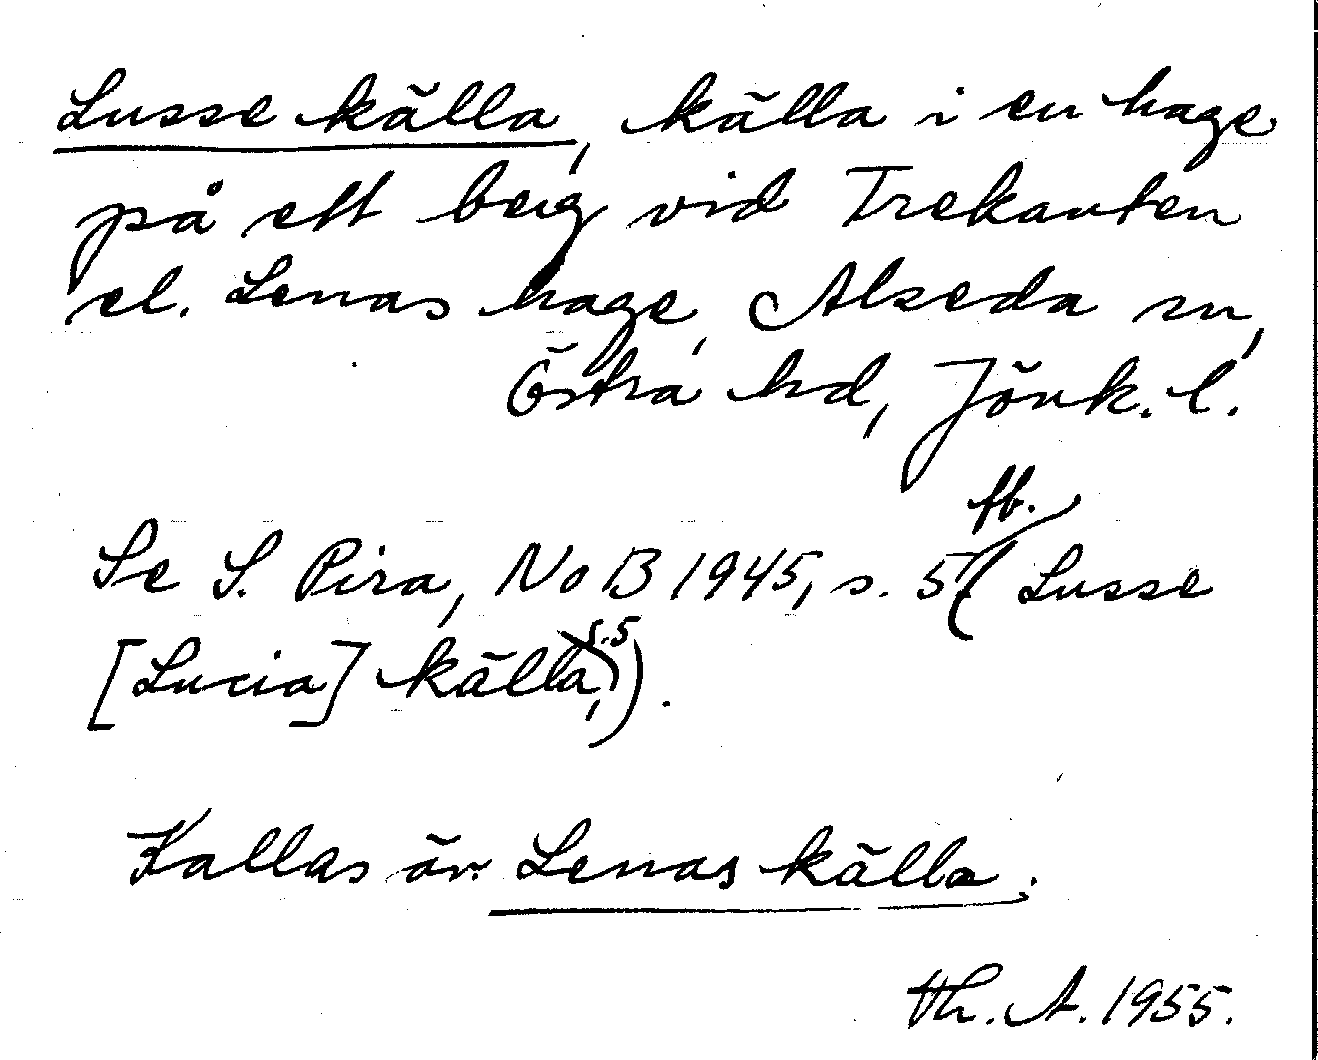 Lusse källa, källa i en hage
på ett berg vid Trekanten
el. Lenas hage, Alseda sn,
Östra hd, Jönk. l.
fb.
Se S. Pira, NoB 1945, s. 5 (Lusse
[Lucia] källa, s. 5).
Kallas äv. Lenas källa.
Th. A. 1955.